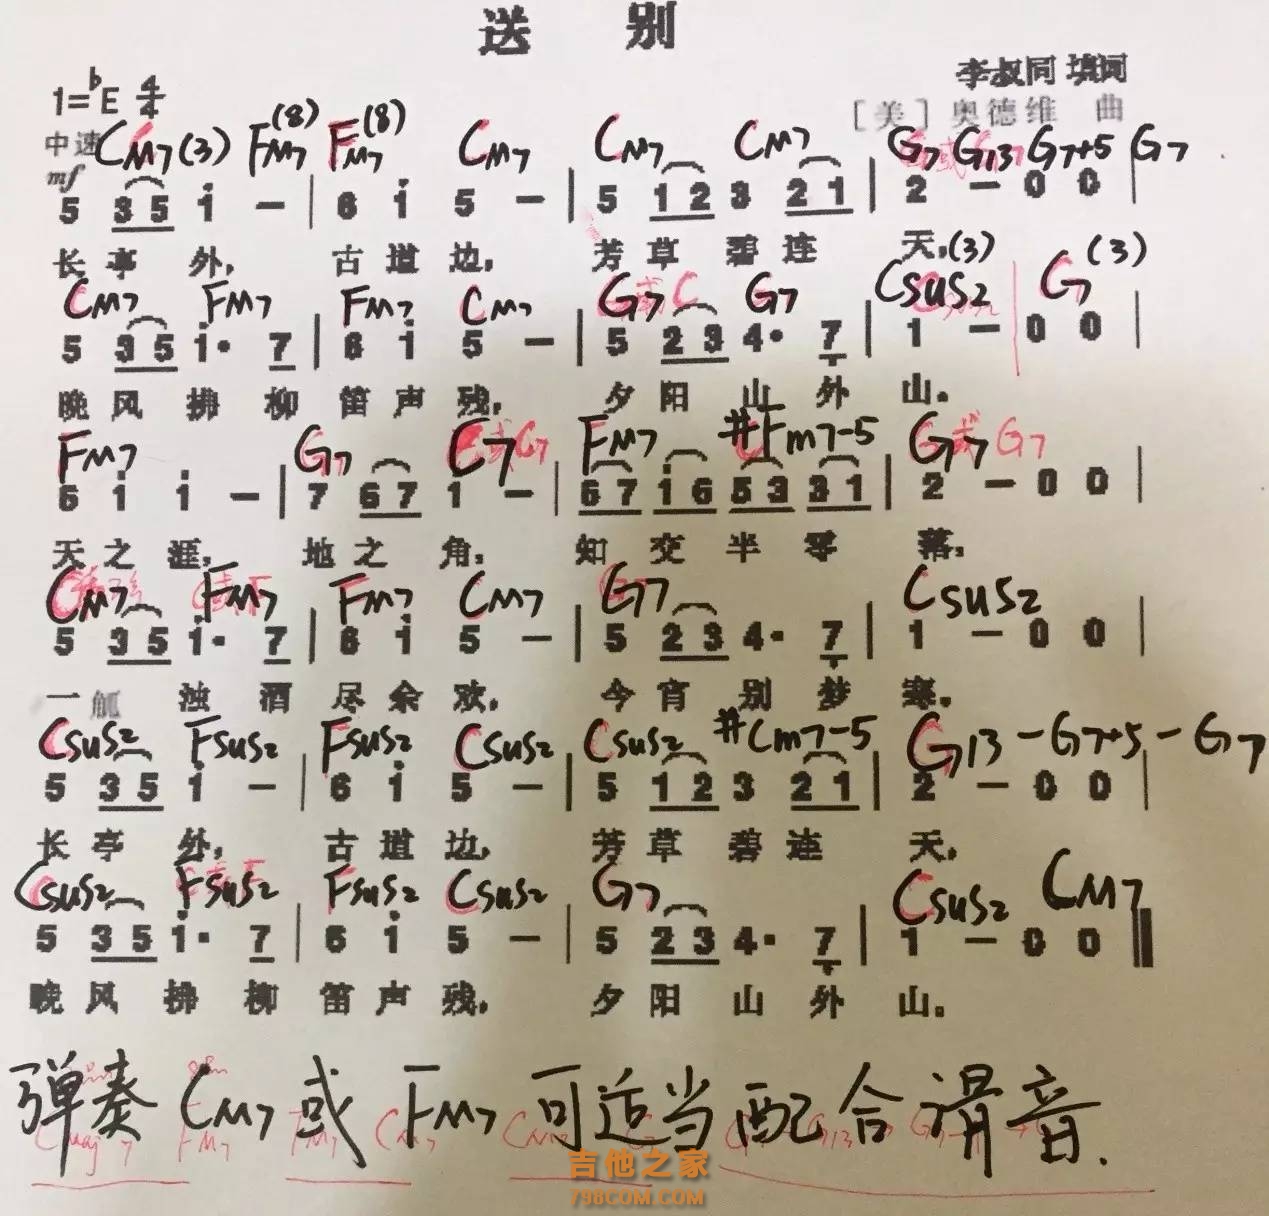 送 别
1=♭E 4/4
李叔同 填词
[美] 奥德维 曲
中速
mf
CM7(3) FM7(8) FM7(8) CM7 CM7 CM7 G7 G13 G7+5 G7
5 3 5 i - | 6 i 5 - | 5 1 2 3 2 1 | 2 - 0 0 |
长 亭 外, 古 道 边, 芳 草 碧 连 天,
CM7 FM7 FM7 CM7 G7 G7 Csus2(3) G7(3)
5 3 5 i· 7 | 6 i 5 - | 5 2 3 4· 7̣ | 1 - 0 0 |
晚 风 拂 柳 笛 声 残, 夕 阳 山 外 山。
FM7 G7 C7 或G7 FM7 #Fm7-5 G7 或 G7
6 i i - | 7 6 7 1 - | 6 7 i 6 5 3 3 1 | 2 - 0 0 |
天 之 涯, 地 之 角, 知 交 半 零 落;
CM7 FM7 FM7 CM7 G7 Csus2
5 3 5 i· 7 | 6 i 5 - | 5 2 3 4· 7̣ | 1 - 0 0 |
一 觚 浊 酒 尽 余 欢, 今 宵 别 梦 寒。
Csus2 Fsus2 Fsus2 Csus2 Csus2 #Cm7-5 G13 - G7+5 - G7
5 3 5 i - | 6 i 5 - | 5 1 2 3 2 1 | 2 - 0 0 |
长 亭 外, 古 道 边, 芳 草 碧 连 天,
Csus2 Fsus2 Fsus2 Csus2 G7 Csus2 CM7
5 3 5 i· 7 | 6 i 5 - | 5 2 3 4· 7̣ | 1 - 0 0
晚 风 拂 柳 笛 声 残, 夕 阳 山 外 山。
弹奏 CM7 或 FM7 可适当配合滑音.
Cmaj7 FM7 FM7 CM7 CM7
吉他之家
798COM.COM